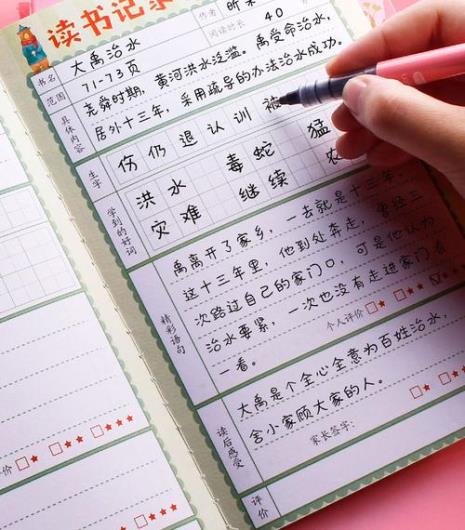 读书记录
书名 大禹治水 作者
范围 71-73页 阅读时长 40
具体内容
尧舜时期，黄河洪水泛滥。禹受命治水，
居外十三年，采用疏导的办法治水成功。
生字 伤仍退认训被
学到的好词
洪水 毒蛇 猛
灾难 继续
精彩语句
禹离开了家乡，一去就是十三年。
这十三年里，他到处奔走，曾经三
次路过自己的家门口，可是他认为
治水要紧，一次也没有走进家门看
一看。
个人评价
读后感受
大禹是个全心全意为百姓治水，
舍小家顾大家的人。
家长签字:
评价
评价